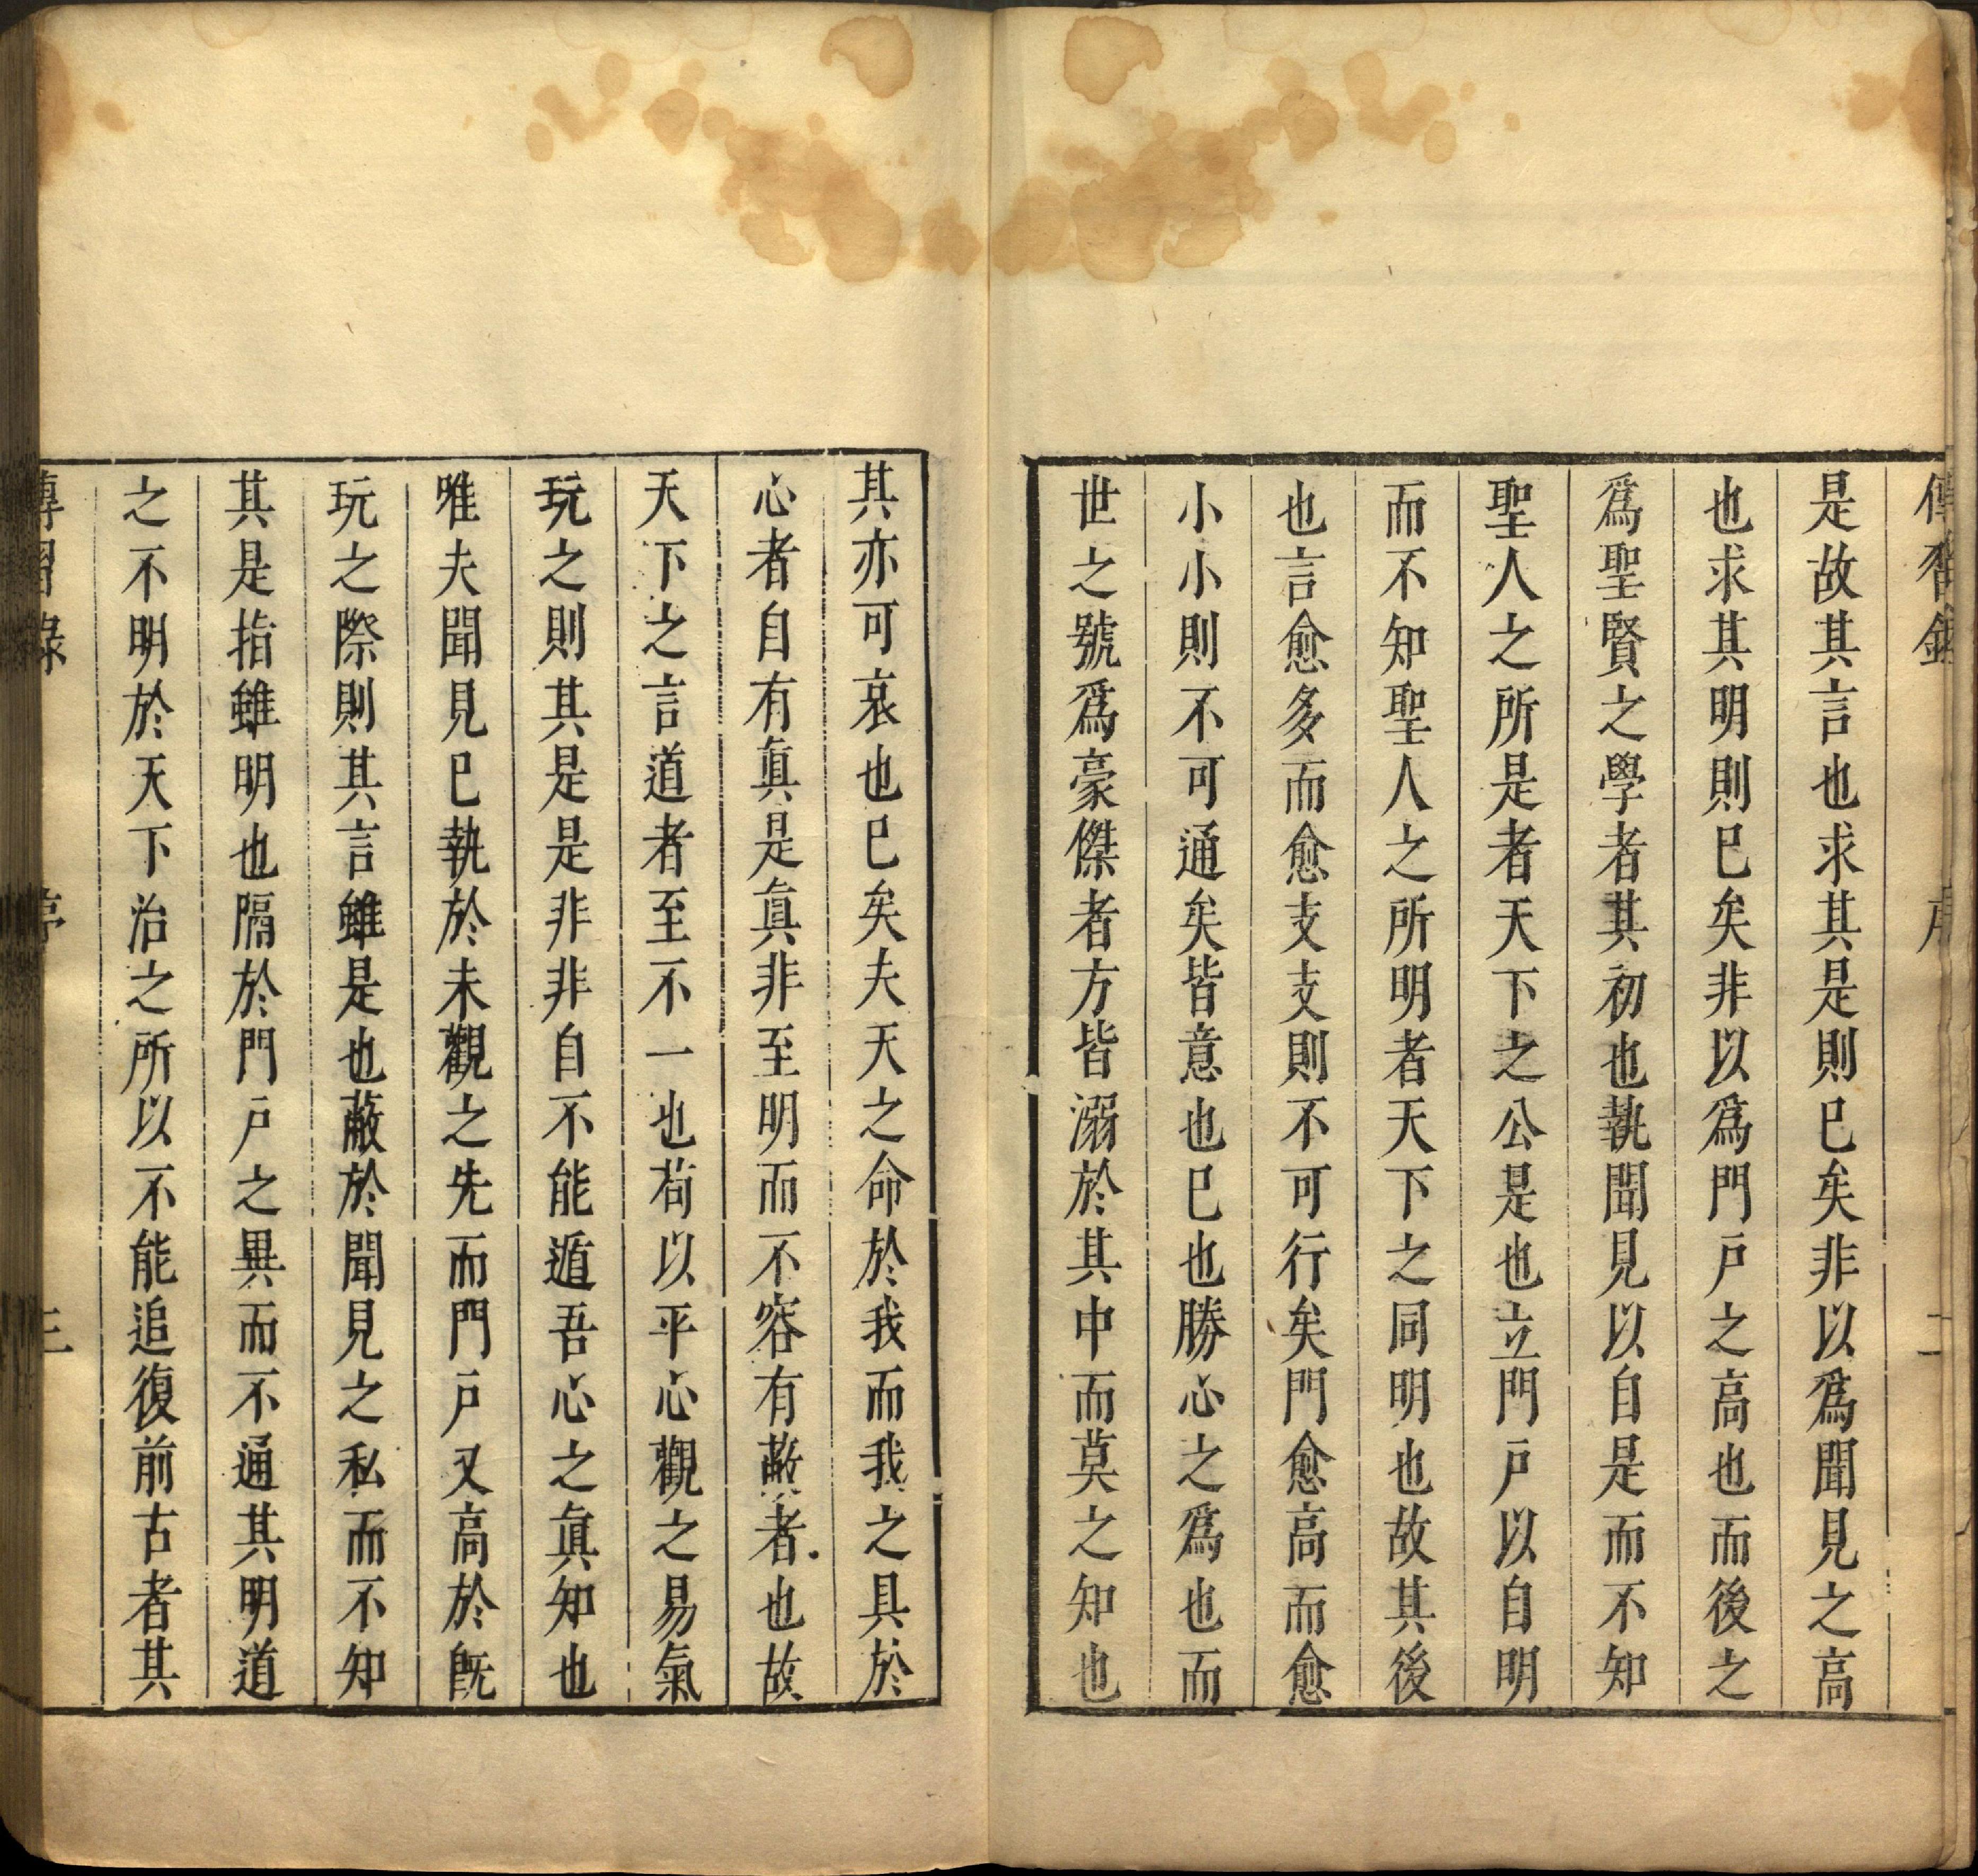 傳習錄 序 二
是故其言也求其是則已矣非以爲聞見之高
也求其明則已矣非以爲門戶之高也而後之
爲聖賢之學者其初也執聞見以自是而不知
聖人之所是者天下之公是也立門戶以自明
而不知聖人之所明者天下之同明也故其後
也言愈多而愈支支則不可行矣門愈高而愈
小小則不可通矣皆意也已也勝心之爲也而
世之號爲豪傑者方皆溺於其中而莫之知也
其亦可哀也已矣夫天之命於我而我之具於
心者自有眞是眞非至明而不容有蔽者也故
天下之言道者至不一也茍以平心觀之易氣
玩之則其是是非非自不能遁吾心之眞知也
唯夫聞見已執於未觀之先而門戶又高於旣
玩之際則其言雖是也蔽於聞見之私而不知
其是指雖明也隔於門戶之異而不通其明道
之不明於天下治之所以不能追復前古者其
傳習錄 序 三